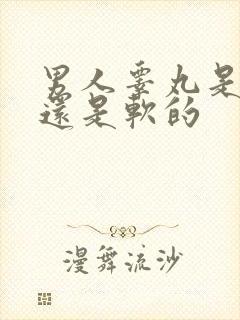 男人睪丸是
還是軟的
漫舞流沙